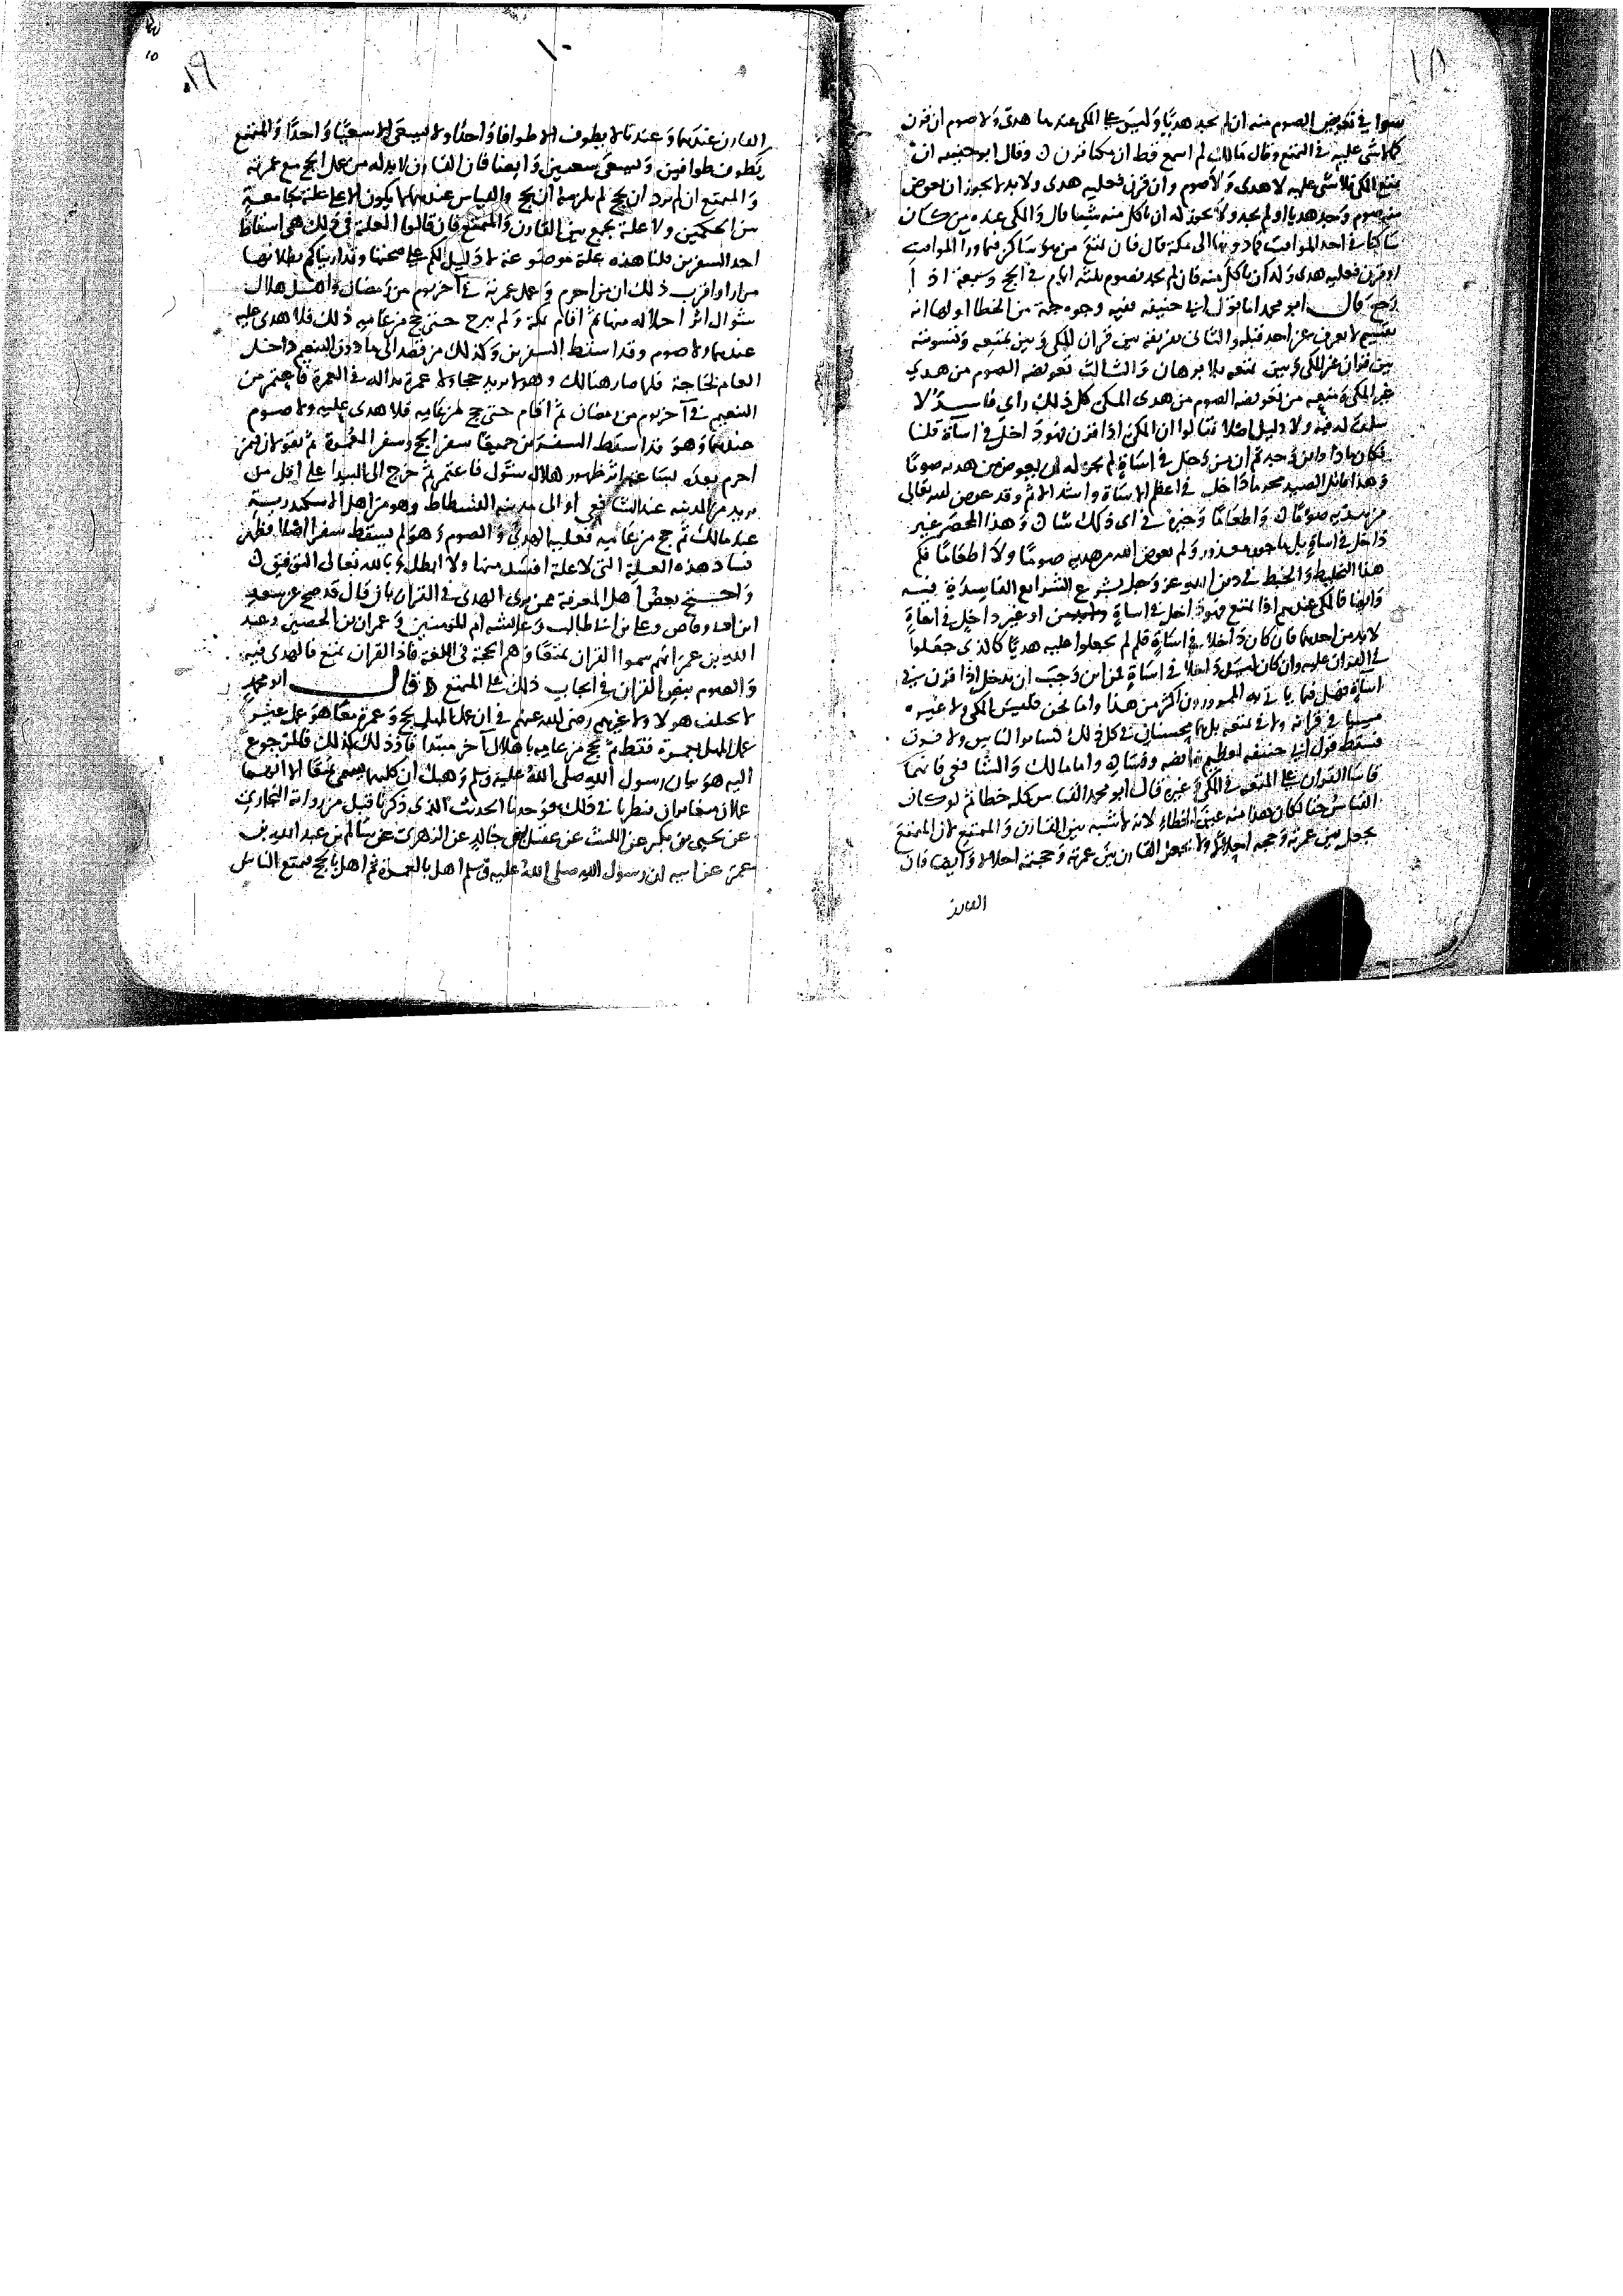 سوا في تعويض الصوم منه ان لم يجد هديا وليس على المكي عندهما هدى ولا صوم ان قرن
كما لا شى عليه في التمتع وقال مالك لم اسمع قط ان مكيا قرن وقال ابو حنيفه ان
تمتع المكي فلا شى عليه لا هدى ولا صوم وان قرن فعليه هدى ولا بد لا يجوز ان يعوض
منه صوم وجد هديا او لم يجد ولا يجوز له ان ياكل منه شيا قال والمكي عنده من كان
ساكنا في احد المواقيت فما دونها الى مكة قال فان تمتع من هو ساكن فيما ورا المواقيت
او قرن فعليه هدى وله ان ياكل منه فان لم يجد فصوم ثلثه ايام في الحج وسبعة اذا
رجع قال ابو محمد اما قول ابي حنيفه ففيه وجوه جمة من الخطا اولها انه
تقسيم لا يعرف عن احد قبله والثاني تفريقه بين قران المكي وبين تمتعه وتسويته
بين قران غير المكي وبين تمتعه بلا برهان والثالث تعويضه الصوم من هدي
غير المكي ومنعه من تعويضه الصوم من هدى المكي كل ذلك راي فاسد لا
سلف له فيه ولا دليل اصلا فقالوا ان المكي اذا قرن فهو داخل في اساة قلنا
فكان ماذا واين وجدتم ان من دخل في اساة لم يجز له ان يعوض من هديه صوما
وهذا قاتل الصيد محرما داخل في اعظم الاساة واشد الاثم وقد عوض الله تعالى
من هديه صوما واطعاما وخيره في اى ذلك شا وهذا المحصر غير
داخل في اساة بل ماجور معذور ولم يعوض الله من هديه صوما ولا اطعاما فكم
هذا التخليط والخبط في دين الله عز وجل بشرع الشرايع الفاسدة فيه
وايضا فالمكي عندهم اذا تمتع فهو داخل في اساة او غير داخل في اساة
لا بد من احدهما فان كان داخلا في اساة فلم لم يجعلوا عليه هديا كالذي جعلوا
في القران عليه وان كان ليس داخلا في اساة فمن اين وجب ان يدخل اذا قرن في
اساة فهل فيما ياتي به الممرورون اكثر من هذا واما نحن فليس المكي ولا غيره
مسيا في قرانه ولا في تمتعه بل هما محسنان في كل ذلك كساير الناس ولا فرق
فسقط قول ابي حنيفه لعظيم تناقضه وفساده واما مالك والشافعي فانهما
قاسا القران على المتعة في المكي وغيره قال ابو محمد القياس كله خطا ثم لو كان
القياس حقا لكان هذا منه عين الخطا لانه لا شبه بين القارن والمتمتع لان المتمتع
يجعل بين عمرته وحجه احلالا ولا يجعل القارن بين عمرته وحجته احلالا وايضا فان
القارن
القارن عندهما وعندنا لا يطوف الا طوافا واحدا ولا يسعى الا سعيا واحدا والمتمتع
يطوف طوافين ويسعى سعيين وايضا فان القارن لا بد له من عمل الحج مع عمرته
والمتمتع ان لم يرد ان يحج لم يلزمه ان يحج والقياس عندهما لا يكون الا على علة جامعة
بين الحكمين ولا علة تجمع بين القارن والمتمتع فان قالوا العلة في ذلك هى اسقاط
احد السفرين قلنا هذه علة موضوعة لا دليل لكم على صحتها وقد اريناكم بطلانها
مرارا واقرب ذلك ان من احرم وعمل عمرته في آخر يوم من رمضان واهل هلال
شوال اثر احلاله منها ثم اقام بمكة ولم يبرح حتى حج من عامه ذلك فلا هدى عليه
عندهما ولا صوم وقد اسقط السفرين وكذلك من قصد الى ما دون التنعيم داخل
العام لحاجة فلما صار هنالك وهو لا يريد حجا ولا عمرة بدا له في العمرة فاعتمر من
التنعيم في آخر يوم من رمضان ثم اقام حتى حج من عامه فلا هدى عليه ولا صوم
عندهما وهو قد اسقط السفرين جميعا سفر الحج وسفر العمرة ثم يقولان فيمن
احرم بعده بساعة اثر ظهور هلال شوال فاعتمر ثم خرج الى البيدا على اقل من
بريد من المدينه عند الشافعي او الى مدينه الفسطاط وهو من اهل الاسكندرية
عند مالك ثم حج من عامه فعليه الهدي والصوم وهو لم يسقط سفرا اصلا فظهر
فساد هذه العلة التي لا علة افسد منها ولا ابطل وبالله تعالى التوفيق
واحتج بعض اهل المعرفة ممن يرى الهدى في القران بان قال قد صح عن سعد
ابن ابى وقاص وعلي بن ابى طالب وعايشه ام المومنين وعمران بن الحصين وعبد
الله بن عمر انهم سموا القران تمتعا وهم الحجة في اللغة فاذ القران تمتع فالهدى فيه
والصوم بنص القران في ايجاب ذلك على المتمتع قال ابو محمد
لا يختلف هولا ولا غيرهم رضى الله عنهم في ان عمل المهل بحج وعمرة معا هو عمل غير
عمل المهل بعمرة فقط ثم يحج من عامه باهلال آخر مبتدا فاذ ذلك كذلك فالمرجوع
اليه هو بيان رسول الله صلى الله عليه وسلم وهبك ان كليهما يسمى تمتعا الا انهما
عملان متغايران فنظرنا في ذلك فوجدنا الحديث الذى ذكرنا قبل من رواية البخاري
عن يحيى بن بكير عن الليث عن عقيل بن خالد عن الزهرى عن سالم بن عبد الله بن
عمر عن ابيه ان رسول الله صلى الله عليه وسلم اهل بالعمرة ثم اهل بالحج فتمتع الناس